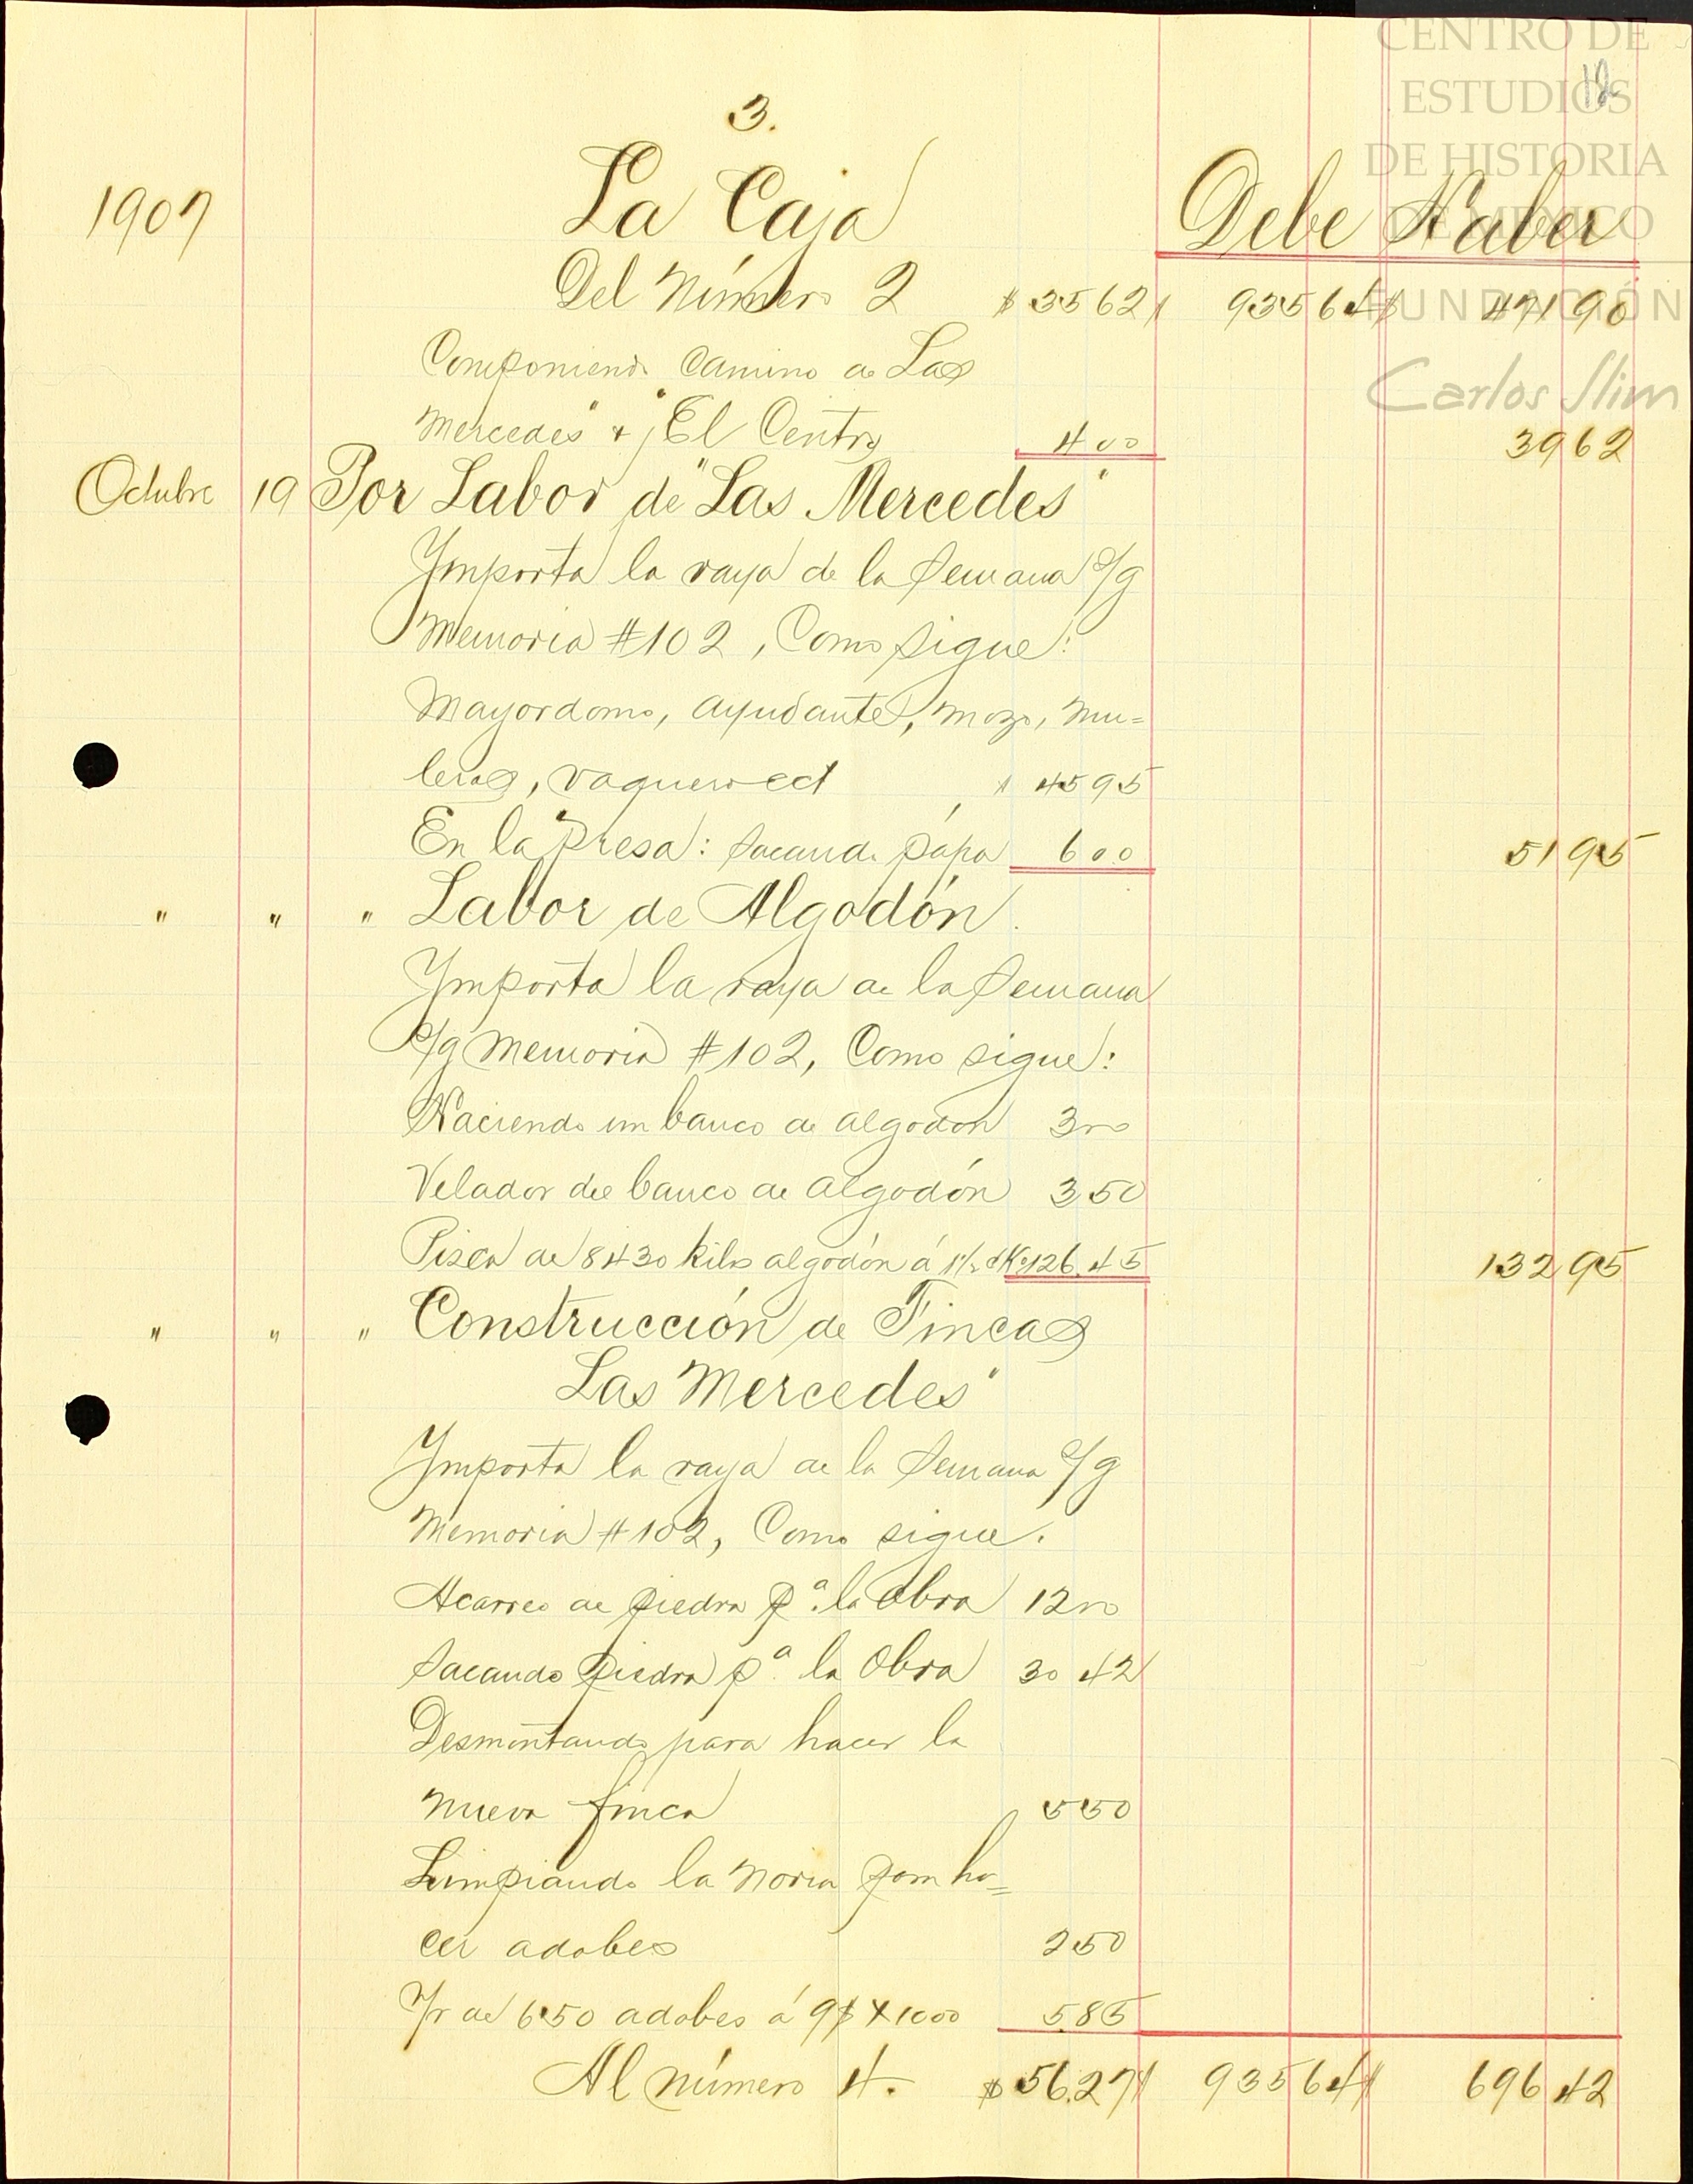 CENTRO DE
ESTUDIOS
DE HISTORIA
DE MÉXICO
FUNDACIÓN
Carlos Slim
12
3.
1907 La Caja Debe Haber
Del Número 2 $ 35 62 $ 935 64 $ 471 90
Componiendo Camino de "Las
Mercedes" & "El Centro 4 00 39 62
Octubre 19 Por Labor de "Las Mercedes"
Ymporta la raya de la Semana s/g
Memoria #102, Como sigue:
Mayordomo, ayudante, mozo, mu=
leros, vaquero ect $ 45 95
En la Presa: Sacando pápa 6 00 51 95
" " " Labor de Algodón.
Ymporta la raya de la Semana
s/g Memoria #102, Como sigue:
Haciendo un banco de algodon 3 00
Velador del banco de algodón 3 50
Pisca de 8430 kilos algodón á 1½ ¢ K° 126.45 132 95
" " " Construcción de Fincas
Las Mercedes"
Ymporta la raya de la Semana s/g
Memoria #102, Como sigue.
Acarreo de piedra pª. la obra 12 00
Sacando piedra pª. la Obra 30 42
Desmontando para hacer la
nueva finca 5 50
Limpiando la Noria para ha=
cer adobes 2 50
Yr de 650 adobes á 9$ X 1000 5.85
Al número 4. $ 56.27 $ 935 64 $ 696 42